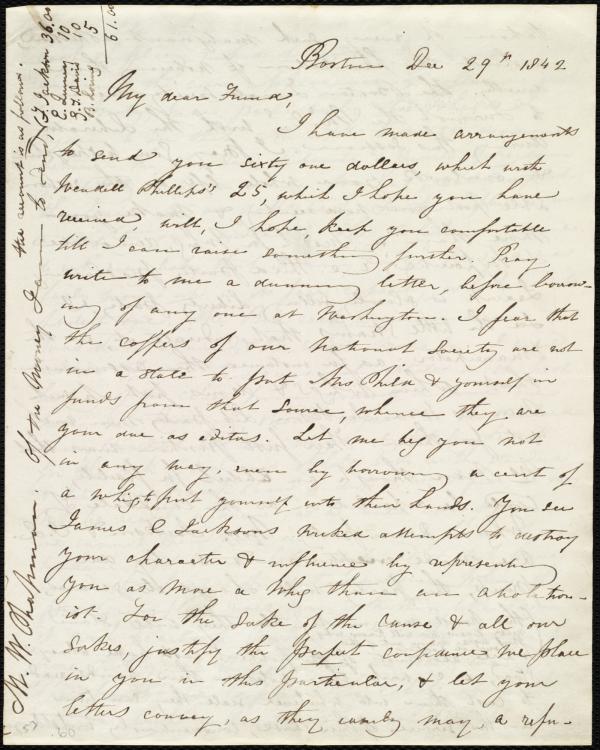 Boston Dec 29th 1842
My dear Friend,
I have made arrangements
to send you sixty one dollars, which with
Wendell Phillips's 25, which I hope you have
received, will, I hope keep you comfortable
till I can raise something further. Pray
write to me a dunning letter, before borrow-
ing of any one at Washington. I fear that
the coffers of our National Society are not
in a state to put Mrs Child & yourself in
funds from that source, whence they are
your due as editors. Let me beg you not
in any way, even by borrowing a cent of
a whig to put yourself into their hands. You see
James C Jacksons wicked attempts to destroy
your character & influence by representing
you as more a Whig than an abolition-
ist. For the sake of the cause & all our
sakes, justify the perfect confidence we place
in you in this particular, & let your
letters convey, as they may, a refu-
M. W. Chapman. Of the money I am to send, the account is as follows.
F Jackson 36.00
10
10
5
61.00